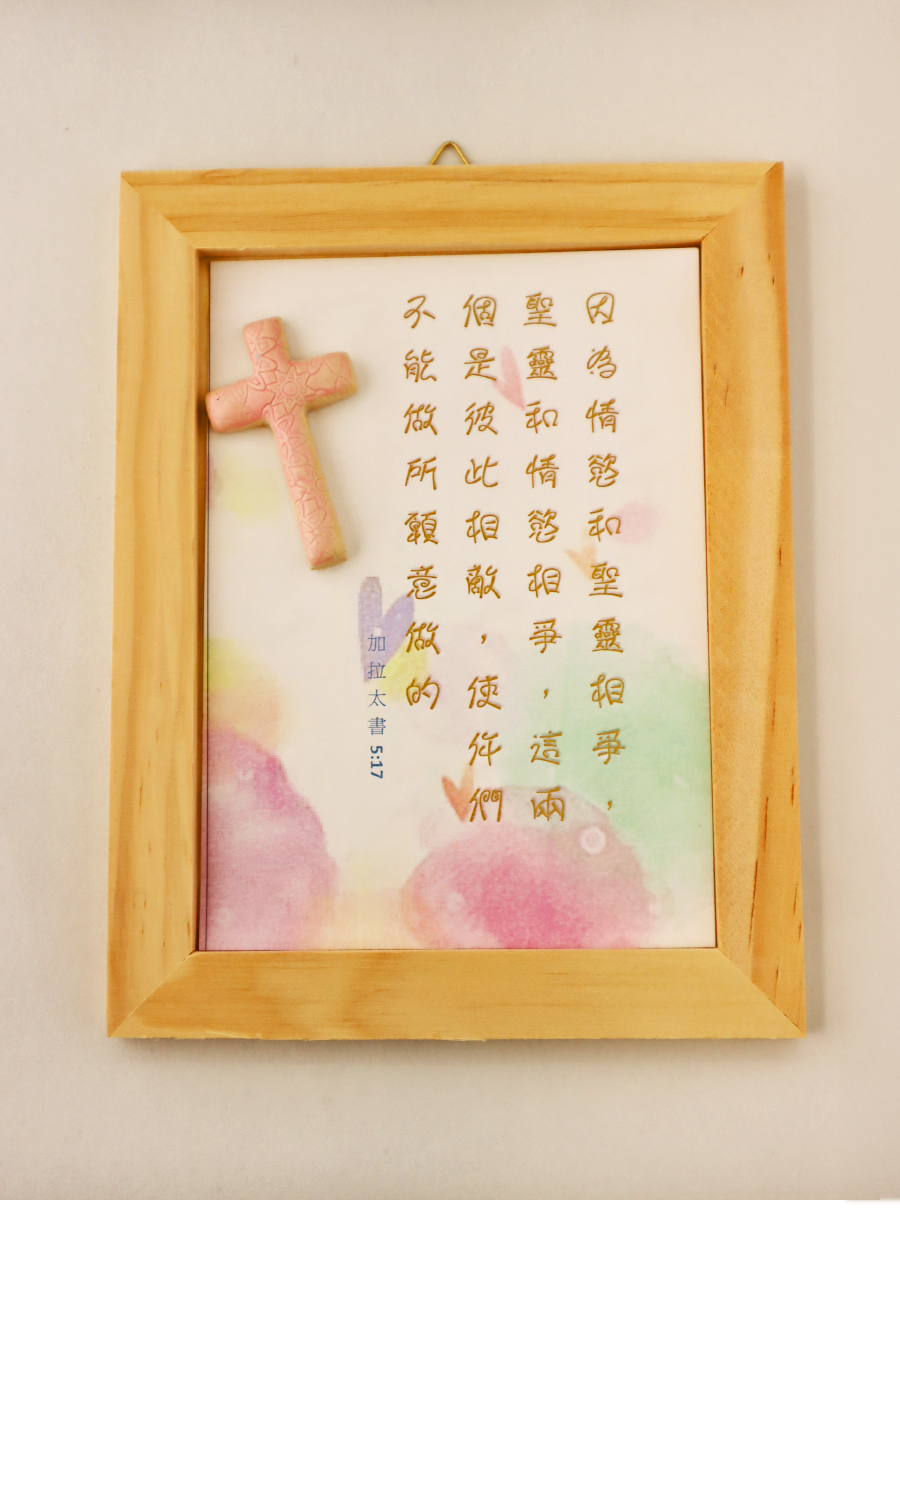 因為情慾和聖靈相爭，
聖靈和情慾相爭，這兩
個是彼此相敵，使你們
不能做所願意做的
加拉太書 5:17